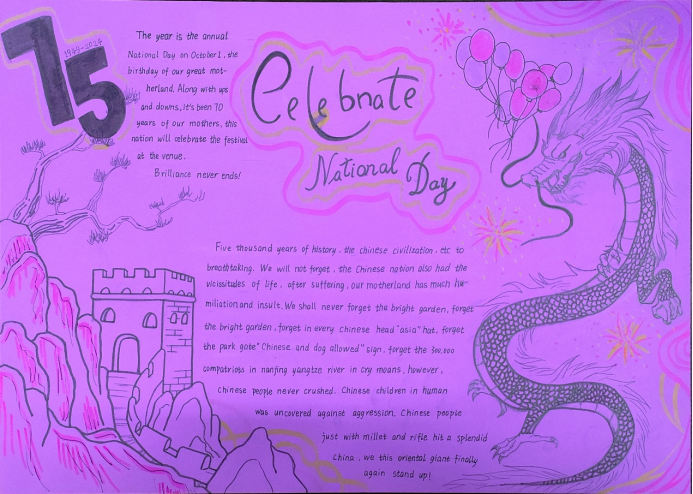 75
1949-2024
The year is the annual
National Day on October1, the
birthday of our great mot-
herland. Along with ups
and downs, it's been 70
years of our mothers, this
nation will celebrate the festival
at the venue.
Brilliance never ends!
Celebrate
National Day
Five thousand years of history, the chinese civilization, etc to
breathtaking. We will not forget, the Chinese nation also had the
vicissitudes of life, after suffering, our motherland has much hu-
miliation and insult. We shall never forget the bright garden, forget
the bright garden, forget in every chinese head "asia" hat, forget
the park gate "Chinese and dog allowed" sign, forget the 300,000
compatriots in nanjing yangtze river in cry moans, however,
Chinese people never crushed. Chinese children in human
was uncovered against aggression, Chinese people
just with millet and rifle hit a splendid
China, we this oriental giant finally
again stand up!